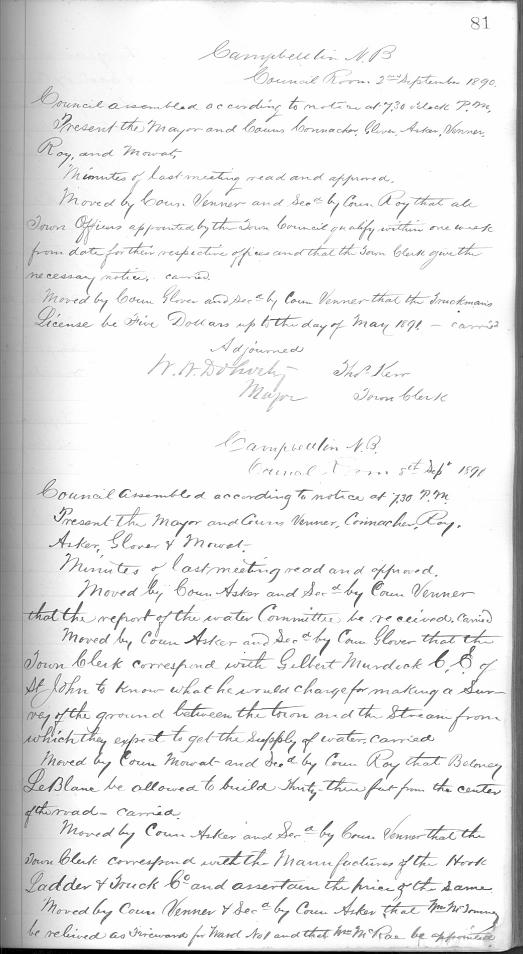 81
Campbellton N.B
Council Room 2nd September 1890.
Council assembled according to notice at 7.30 oclock P.M.
Present the Mayor and Couns Connacher, Glover, Asker, Venner,
Roy, and Mowat,
Minutes of last meeting read and approved.
Moved by Coun Venner and Secd by Coun Roy that all
Town Officers appointed by the Town Council qualify within one week
from date for their respective offices and that the Town Clerk give the
necessary notice. carried
Moved by Coun Glover and Secd by Coun Venner that the Truckman's
License be Five Dollars up to the day of May 1891 - carried
Adjourned
Thos Kerr
Mayor Town Clerk
Campbellton N.B.
Council Room 8th Sept
Council assembled according to notice at 7.30 P.M
Present the Mayor and Couns Venner, Connacher, Roy,
Asker, Glover & Mowat.
Minutes of last meeting read and approved.
Moved by Coun Asker and Secd by Coun Venner
that the report of the water Committee be received. carried
Moved by Coun Asker and Secd by Coun Glover that the
Town Clerk correspond with Gilbert Murdock C.E. of
St John to know what he would charge for making a Sur-
vey of the ground between the town and the Stream from
which they expect to get the supply of water. carried
Moved by Coun Mowat and Secd by Coun Roy that Beloney
LeBlanc be allowed to build Thirty three feet from the center
of the road - carried.
Moved by Coun Asker and Secd by Coun Venner that the
Town Clerk correspond with the Manufactures of the Hook
Ladder & Truck Co and assertain the price of the same
Moved by Coun Venner & Secd by Coun Asker that Wm
be relieved as Fireward for Ward No 1 and that Wm McRae be appointed